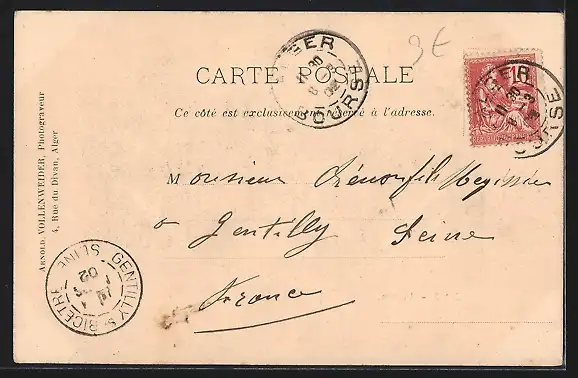 9 E
CARTE POSTALE
Ce côté est exclusivement réservé à l'adresse.
ALGER
BOURSE
ALGER
BOURSE
10
Monsieur
à Gentilly Seine
France
GENTILLY S. BICETRE SEINE
02
ARNOLD VOLLENWEIDER, Photograveur
4, Rue du Divan, Alger